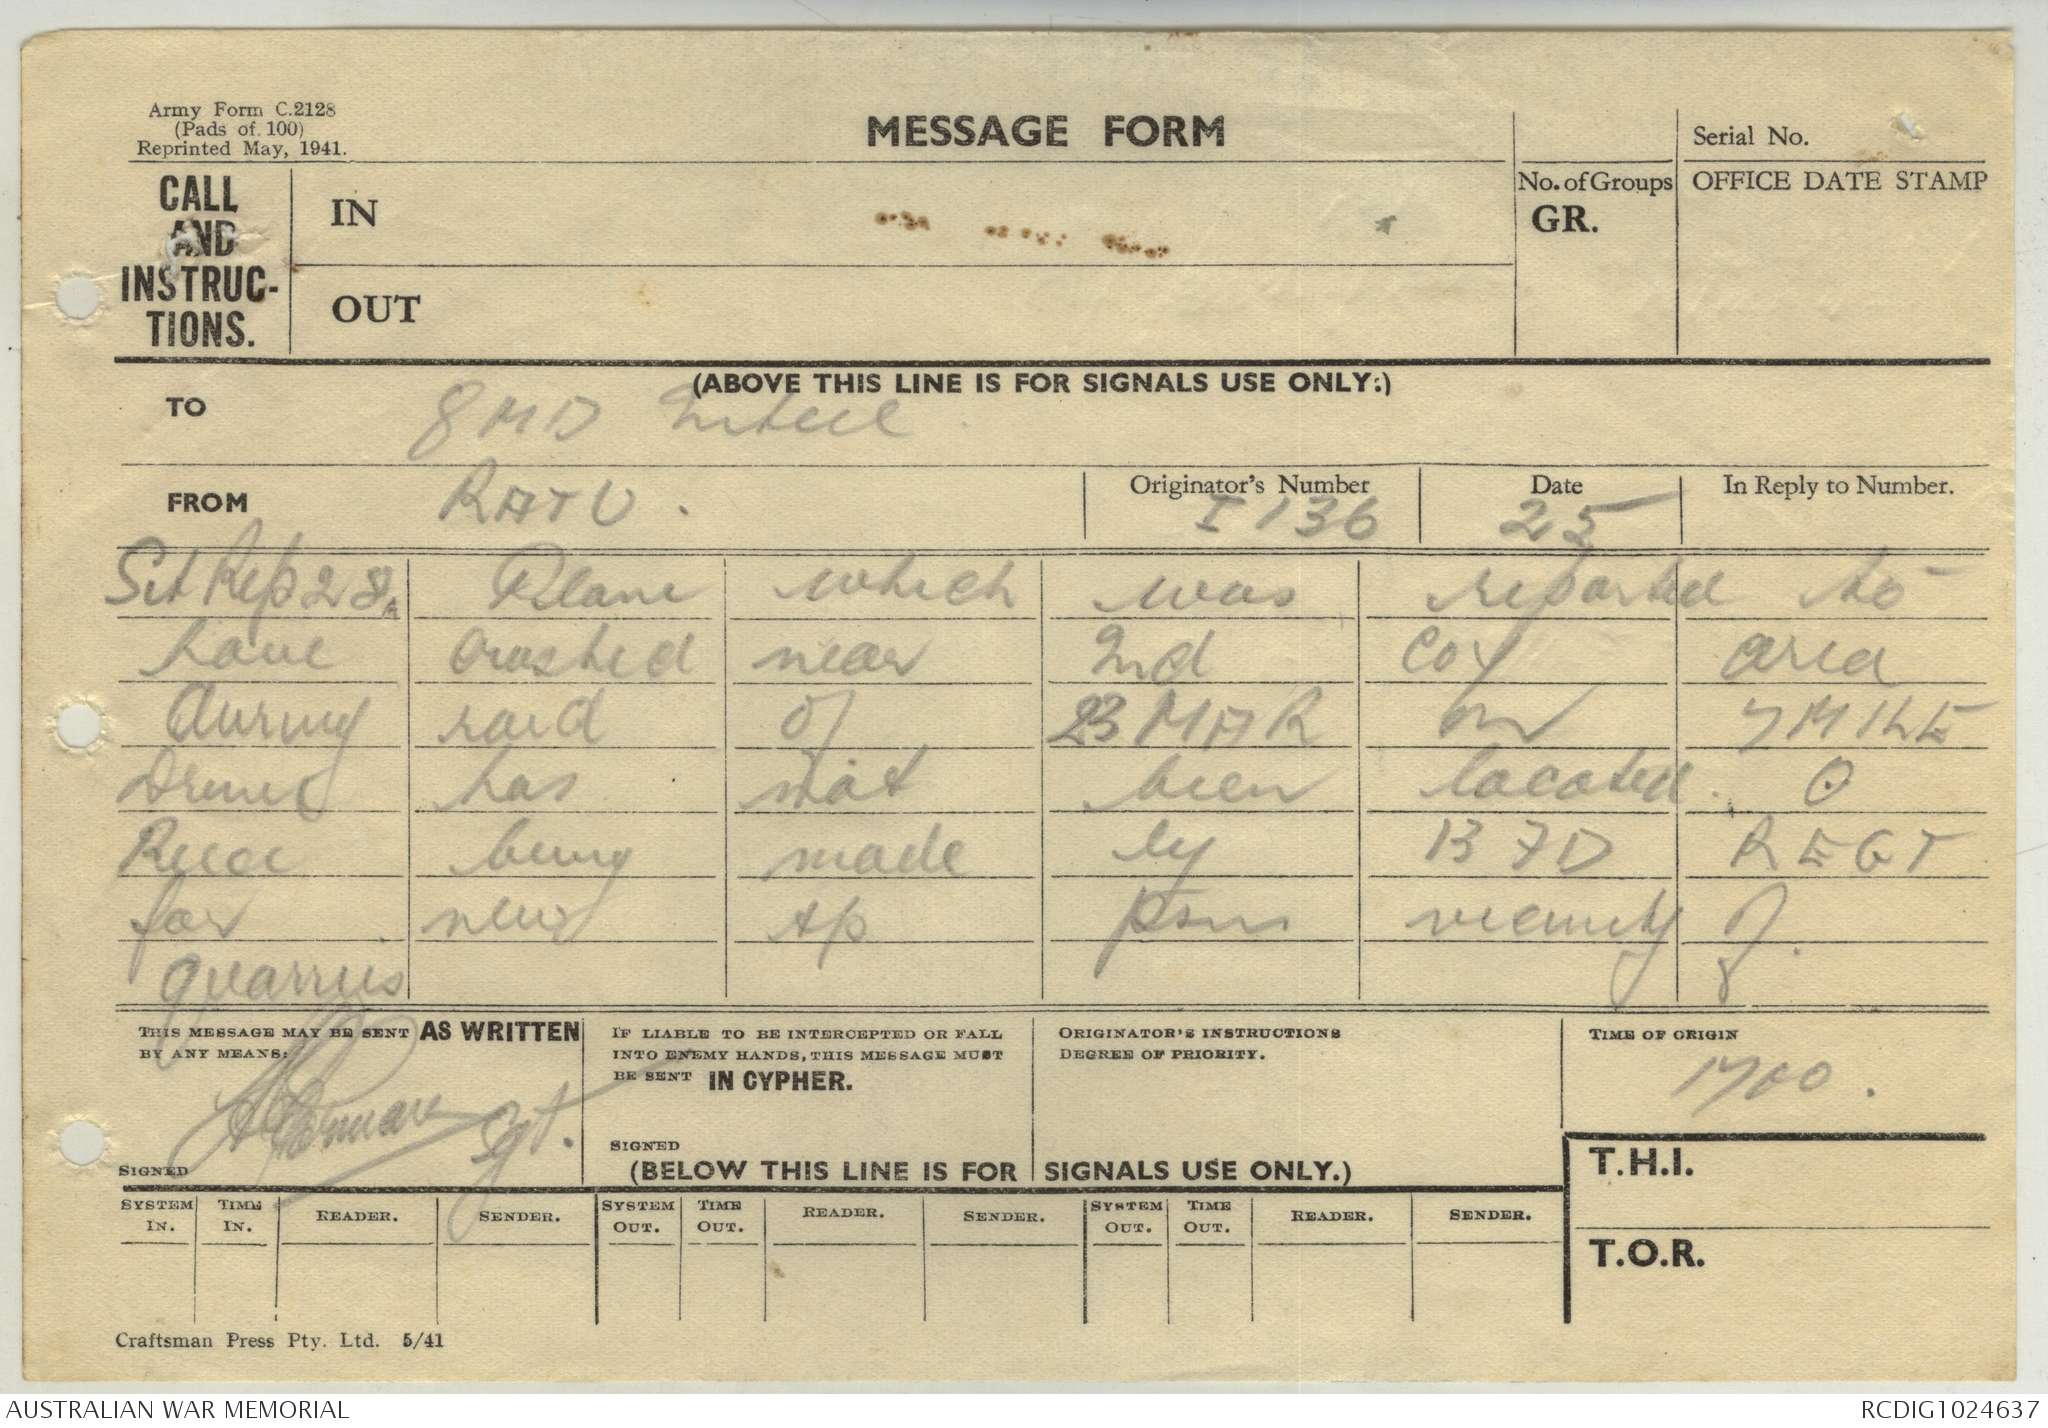 Army Form C.2128
(Pads of 100)
Reprinted May, 1941.
MESSAGE FORM
Serial No.
CALL
AND
INSTRUC-
TIONS.
IN
OUT
No. of Groups
GR.
OFFICE DATE STAMP
(ABOVE THIS LINE IS FOR SIGNALS USE ONLY.)
TO 8 MD Intell
FROM RATU.
Originator's Number I 136
Date 25
In Reply to Number.
Sit Rep 28A Plane which was reported to
have crashed near 2nd Coy area
during raid of 23 MAR on 7 MILE
Drome has not been located. O
Recce being made by 13 FD REGT
for new AP psns vicinity of
quarries
THIS MESSAGE MAY BE SENT AS WRITTEN
BY ANY MEANS:
Sgt.
SIGNED
IF LIABLE TO BE INTERCEPTED OR FALL
INTO ENEMY HANDS, THIS MESSAGE MUST
BE SENT IN CYPHER.
SIGNED
ORIGINATOR'S INSTRUCTIONS
DEGREE OF PRIORITY.
TIME OF ORIGIN
1700.
(BELOW THIS LINE IS FOR SIGNALS USE ONLY.)
T.H.I.
T.O.R.
SYSTEM IN. TIME IN. READER. SENDER. SYSTEM OUT. TIME OUT. READER. SENDER. SYSTEM OUT. TIME OUT. READER. SENDER.
Craftsman Press Pty. Ltd. 5/41
AUSTRALIAN WAR MEMORIAL
RCDIG1024637